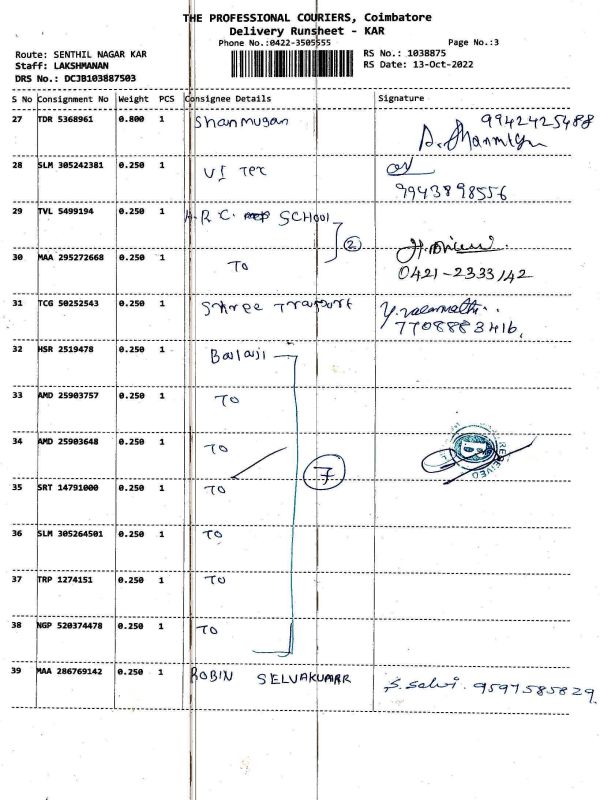 THE PROFESSIONAL COURIERS, Coimbatore
Delivery Runsheet - KAR
Phone No.:0422-3505555 Page No.:3
Route: SENTHIL NAGAR KAR RS No.: 1038875
Staff: LAKSHMANAN RS Date: 13-Oct-2022
DRS No.: DCJB103887503
S No Consignment No Weight PCS Consignee Details Signature
27 TDR 5368961 0.800 1 Shanmugan 9942425488
28 SLM 305242381 0.250 1 VI Tex
9943898556
29 TVL 5499194 0.250 1 A.R.C. SCHOOL
2
30 MAA 295272668 0.250 1 TO 0421-2333142
31 TCG 50252543 0.250 1 Shree
7708883416.
32 HSR 2519478 0.250 1 Balaji
33 AMD 25903757 0.250 1 TO
34 AMD 25903648 0.250 1 TO RECEIVED
7
35 SRT 14791000 0.250 1 TO
36 SLM 305264501 0.250 1 TO
37 TRP 1274151 0.250 1 TO
38 NGP 520374478 0.250 1 TO
39 MAA 286769142 0.250 1 ROBIN SELVAKUMAR S. Selvi. 9597585829